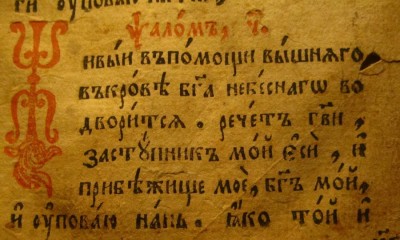 ѱало́мъ, ч҃.
ивыи въпо́мощи вы́шняго
въкро́вѣ бг҃а небе́снагѡ во
двори́тся. рече́тъ гв҃и,
засту́пникъ мо́й є҆сѝ, и҆
прибѣ́жище моѐ, бг҃ъ мо́й,
и҆ ѹ҆пова́ю на́нь. ꙗ҆́ко то́й и҆